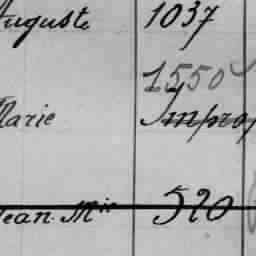 Auguste 1037
1550
Marie Improp
Jean Mie 520